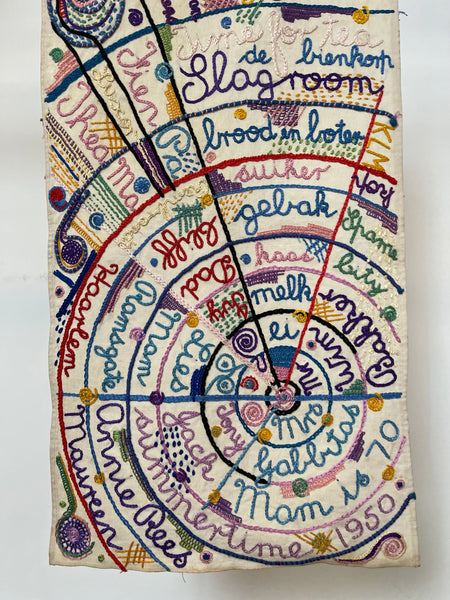 Time for tea
de bienkorf
Slagroom
brood en boter
suiker
gebak
kaas
melk
ei
KIM
Joy
Spame
Thea
Sien
Ma
Cliff
Dad
Haarlem
Ramsgate
Mam
Lies
Wim
Bakker
Mr
Mrs
Gabbitas
Mam is 70
Tony
Jack
summertime 1950
Annie Rees
Maureen